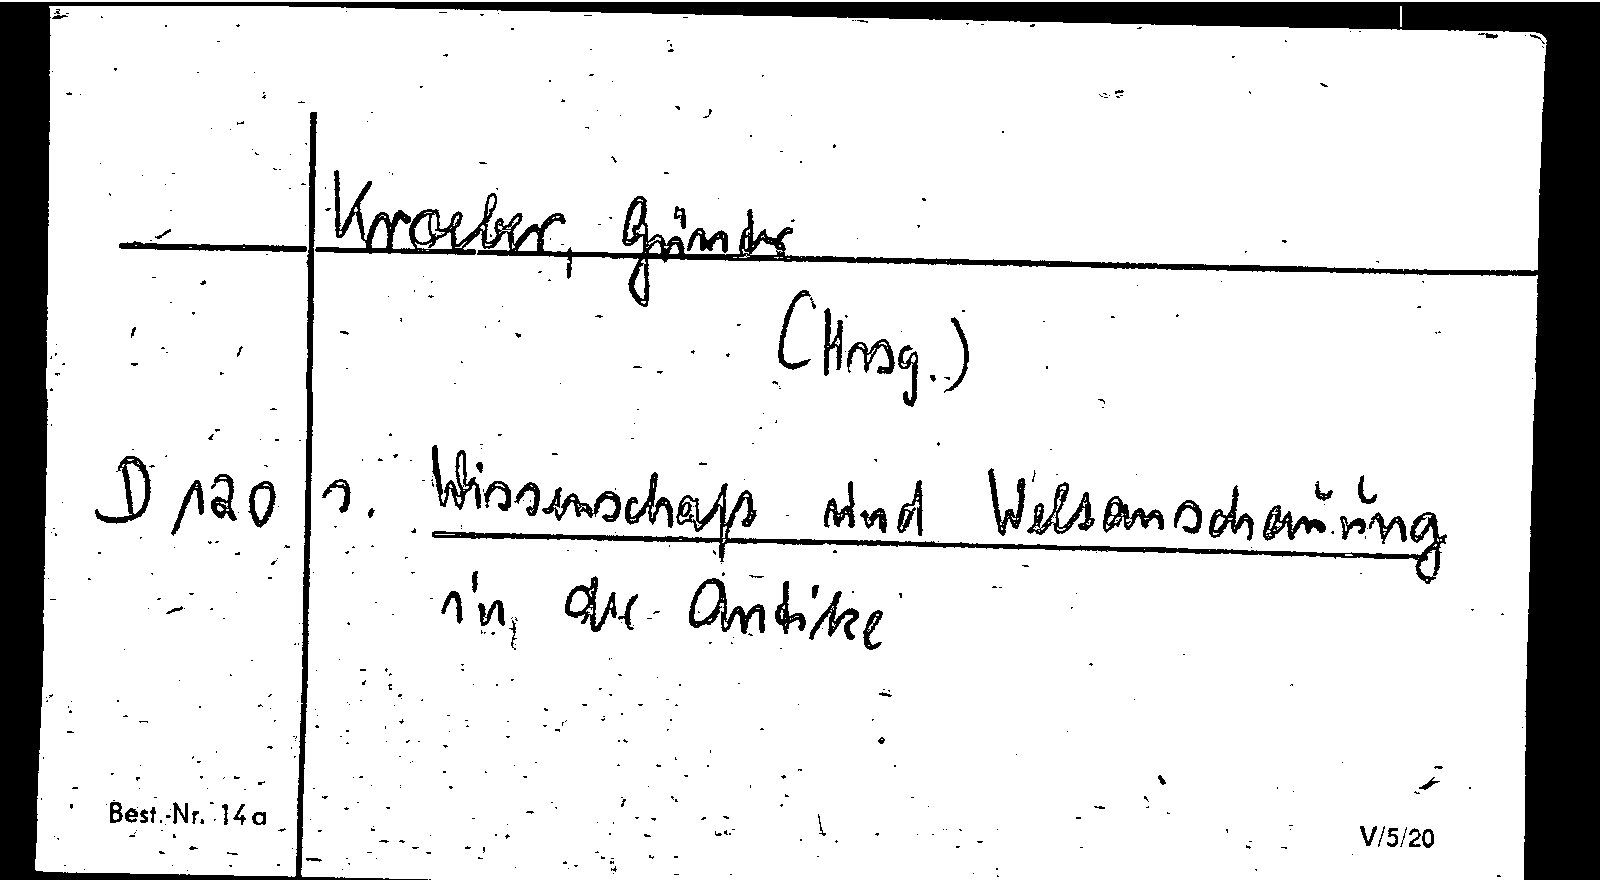 Kroeber, Günter
(Hrsg.)
D 120 s. Wissenschaft und Weltanschauung
in der Antike
Best.-Nr. 14a
V/5/20